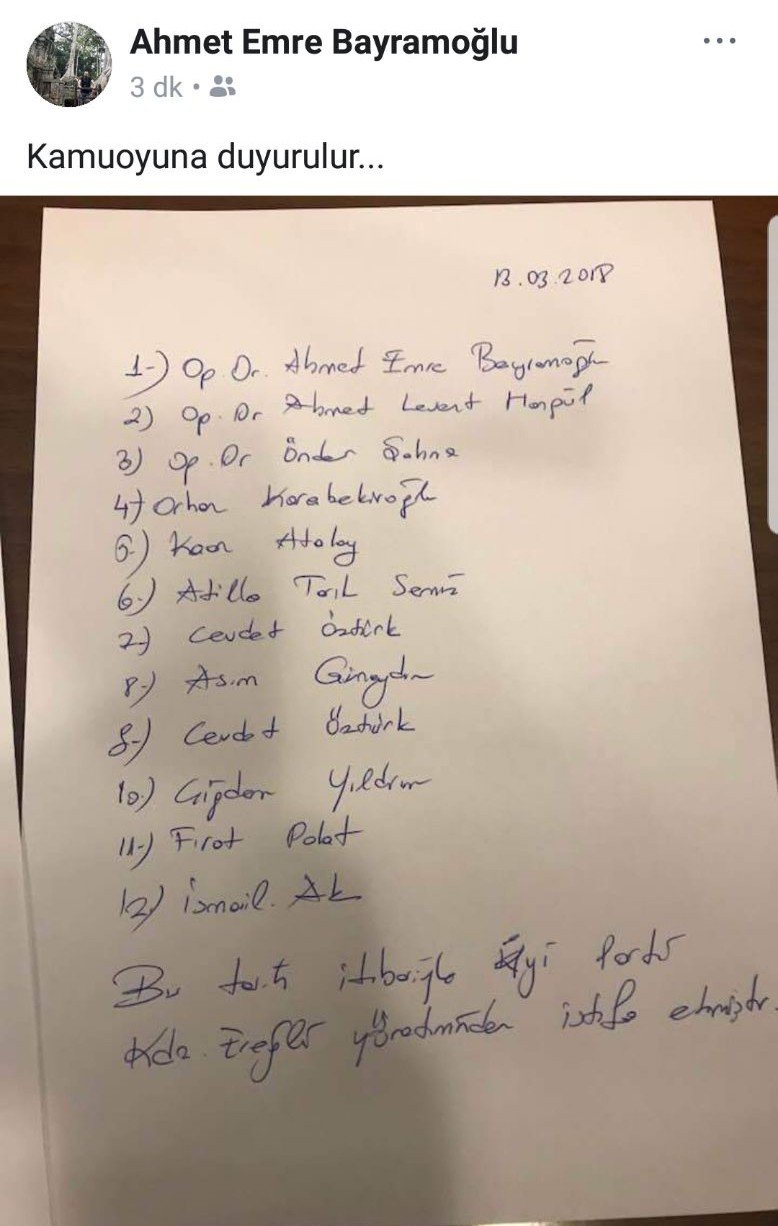 Ahmet Emre Bayramoğlu
3 dk
Kamuoyuna duyurulur...
13.03.2018
1-) Op Dr. Ahmed Emre Bayramoğlu
2) Op. Dr Ahmed Levent Horpül
3) Op. Dr Önder Şahne
4-) Orhan Karabekiroğlu
5-) Kaan Atalay
6-) Atilla Tarık Semiz
7-) Cevdet Öztürk
8-) Asım Günaydın
9-) Cevdet Öztürk
10-) Çiğdem Yıldırım
11-) Fırat Polat
12) İsmail. Ak
Bu tarih itibarıyla iyi Parti
Kdz. Ereğli yönetiminden istifa etmiştir.